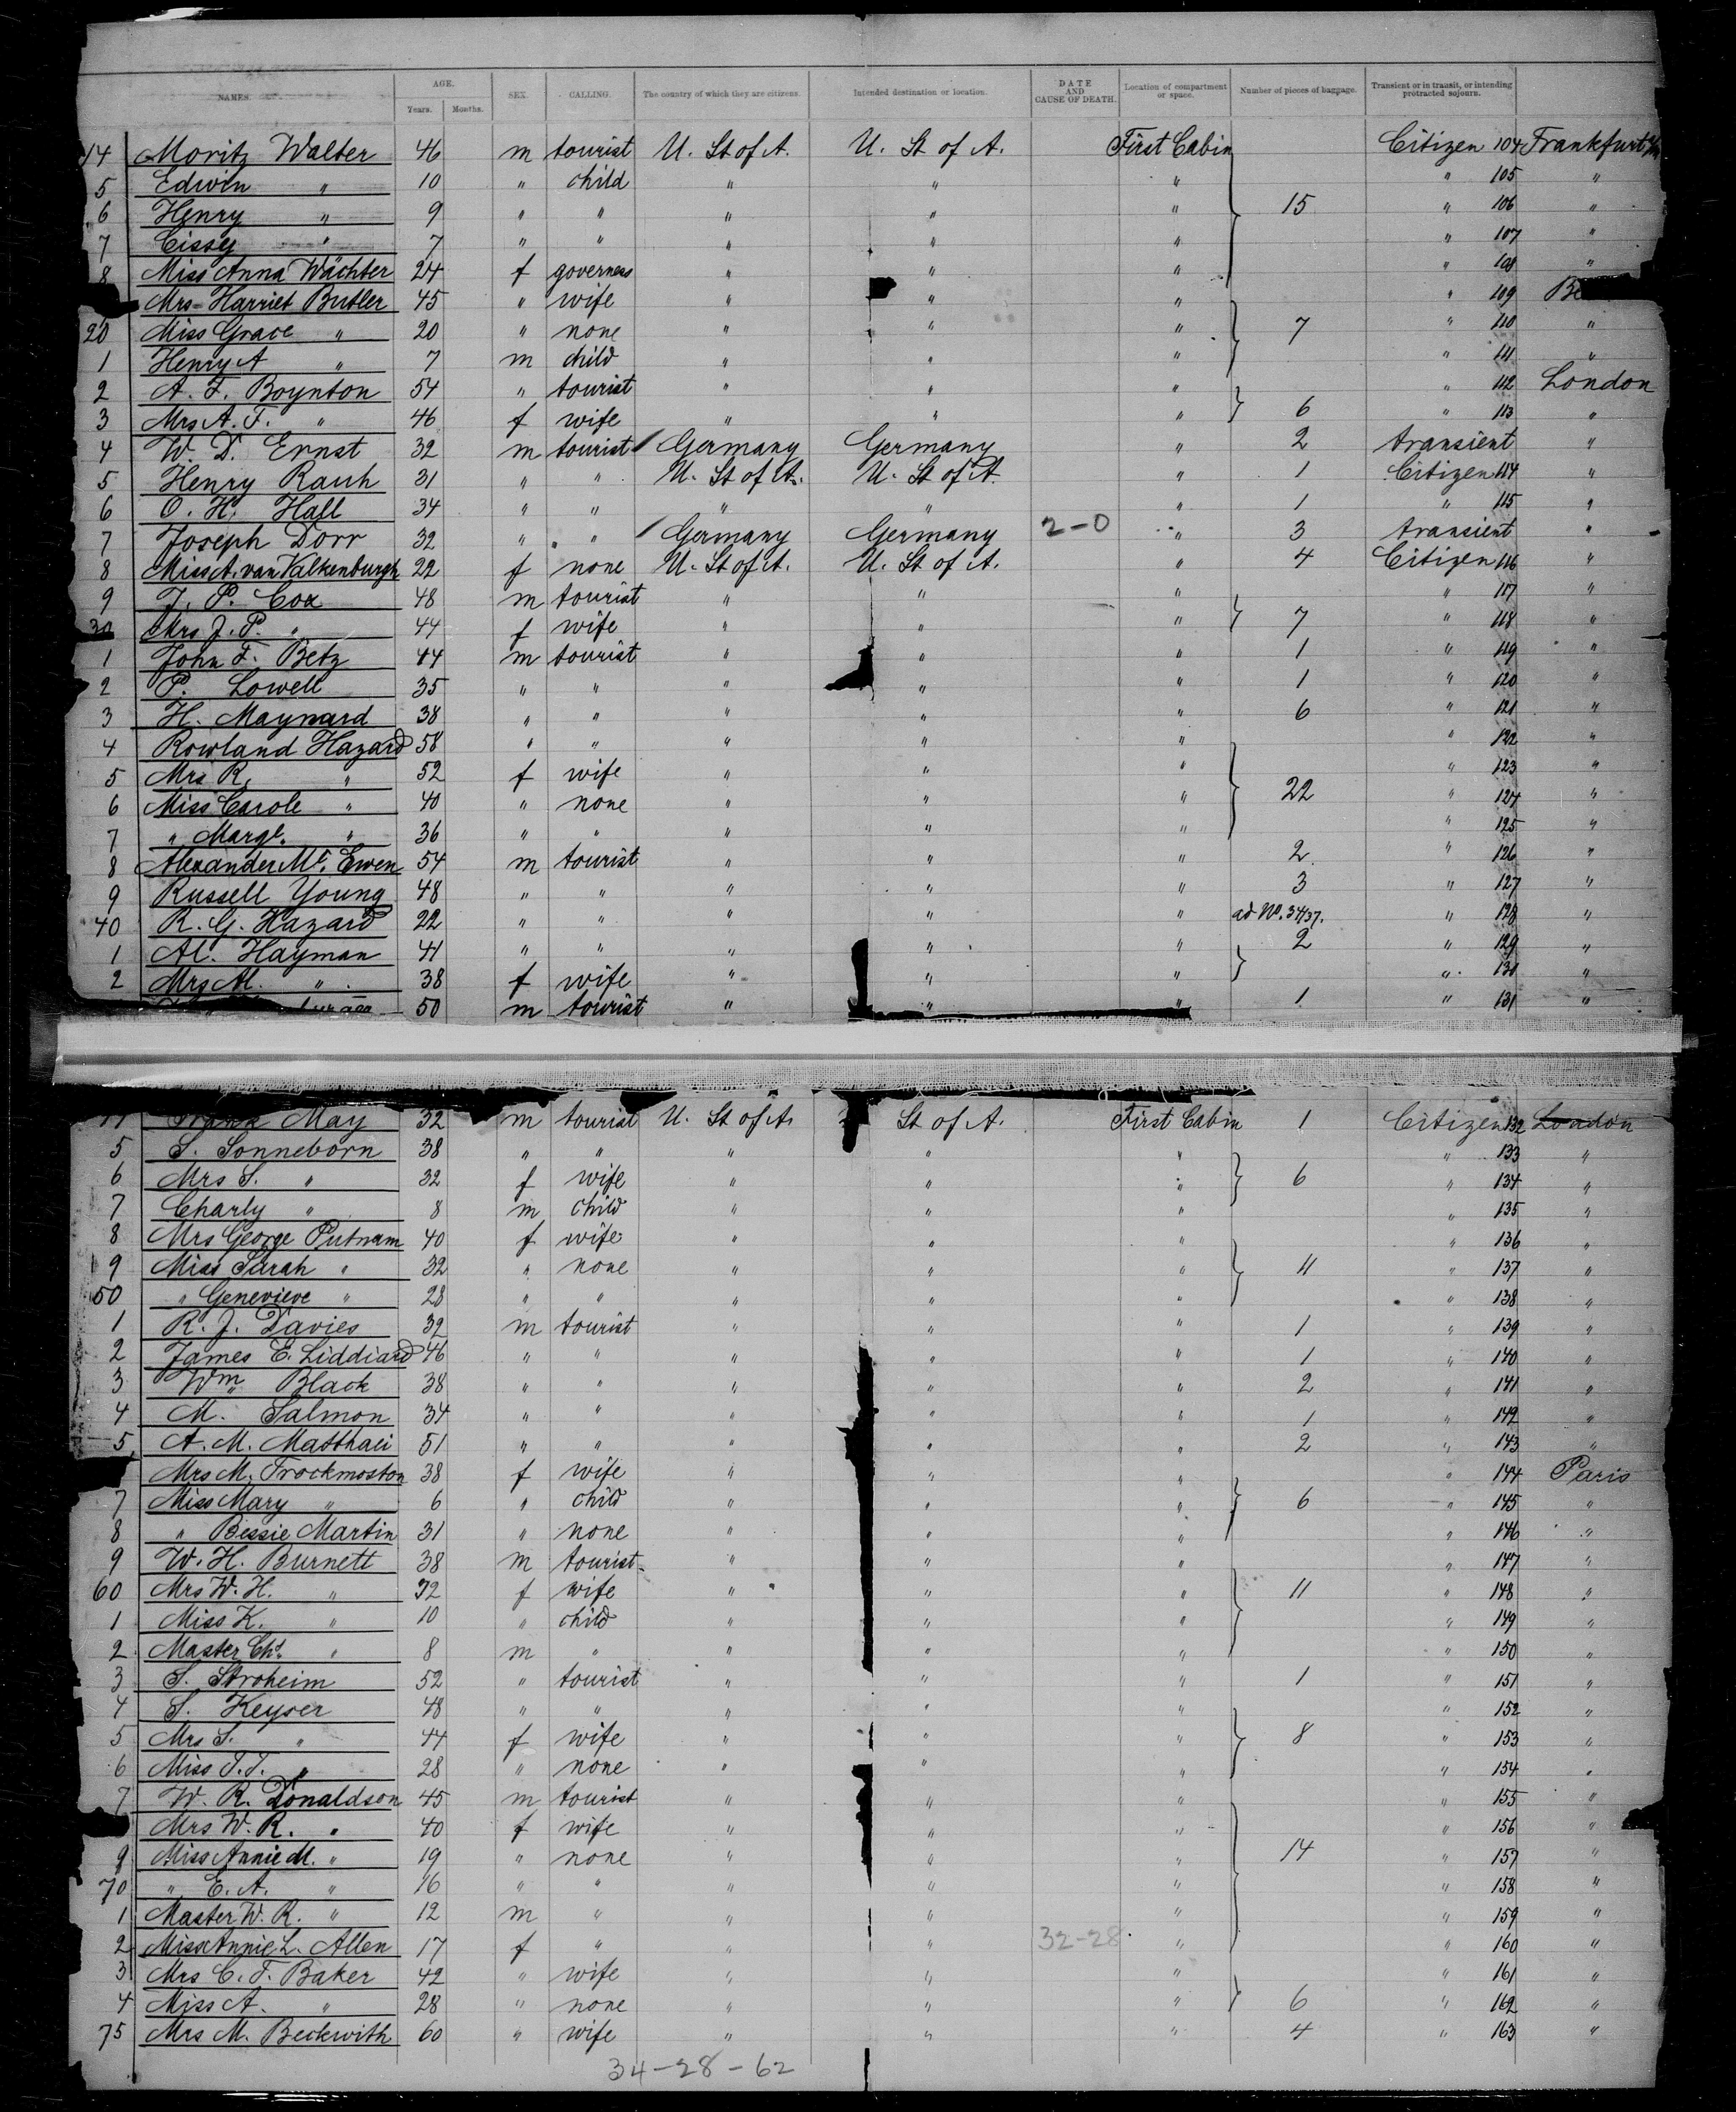 NAMES. AGE. Years. Months. SEX. CALLING. The country of which they are citizens. Intended destination or location. DATE AND CAUSE OF DEATH. Location of compartment or space. Number of pieces of baggage. Transient or in transit, or intending protracted sojourn.
14 Moritz Walter 46 m tourist U. St of A. U. St of A. First Cabin Citizen 104 Frankfurt
5 Edwin " 10 " child " " " " 105 "
6 Henry " 9 " " " " " 15 " 106 "
7 Cissy " 7 " " " " " " 107 "
8 Miss Anna Wächter 24 f governess " " " " 108 "
Mrs Harriet Butler 45 " wife " " " " 109
20 Miss Grace " 20 " none " " " 7 " 110 "
1 Henry A " 7 m child " " " " 111 "
2 A. F. Boynton 54 " tourist " " " " 112 London
3 Mrs A. F. " 46 f wife " " " 6 " 113 "
4 W. D. Ernst 32 m tourist Germany Germany " 2 transient "
5 Henry Rauh 31 " " U. St of A. U. St of A " 1 Citizen 114 "
6 O. H. Hall 34 " " " " " 1 " 115 "
7 Joseph Dorr 32 " " Germany Germany 2-0 " 3 transient "
8 Miss A. van Valkenburgh 22 f none U. St of A. U. St of A. " 4 Citizen 116 "
9 J. P. Cox 48 m tourist " " " " 117 "
30 Mrs J. P. " 44 f wife " " " 7 " 118 "
1 John F. Betz 44 m tourist " " " 1 " 119 "
2 P. Lowell 35 " " " " " 1 " 120 "
3 H. Maynard 38 " " " " " 6 " 121 "
4 Rowland Hazard 58 " " " " " " 122 "
5 Mrs R. " 52 f wife " " " " 123 "
6 Miss Carole " 40 " none " " " 22 " 124 "
7 " Margt. " 36 " " " " " " 125 "
8 Alexander Mc. Ewen 54 m tourist " " " 2 " 126 "
9 Russell Young 48 " " " " " 3 " 127 "
40 R. G. Hazard 22 " " " " " ad No. 34/37. " 128 "
1 Al. Hayman 41 " " " " " 2 " 129 "
2 Mrs Al. " 38 f wife " " " " 130 "
50 m tourist " " " 1 " 131 "
Frank May 32 m tourist U. St of A. St of A. First Cabin 1 Citizen 132 London
5 S. Sonneborn 38 " " " " " " 133 "
6 Mrs S. " 32 f wife " " " 6 " 134 "
7 Charly " 8 m child " " " " 135 "
8 Mrs George Putnam 40 f wife " " " " 136 "
9 Miss Sarah " 32 " none " " " 11 " 137 "
50 " Genevieve " 28 " " " " " " 138 "
1 R. J. Davies 32 m tourist " " " 1 " 139 "
2 James E. Liddiard 46 " " " " " 1 " 140 "
3 Wm Black 38 " " " " " 2 " 141 "
4 M. Salmon 34 " " " " " 1 " 142 "
5 A. M. Matthaei 51 " " " " " 2 " 143 "
Mrs M. Trockmoston 38 f wife " " " " 144 Paris
7 Miss Mary " 6 " child " " " 6 " 145 "
8 " Bessie Martin 31 " none " " " " 146 "
9 W. H. Burnett 38 m tourist " " " " 147 "
60 Mrs W. H. " 32 f wife " " " 11 " 148 "
1 Miss K. " 10 " child " " " " 149 "
2 Master Chs. " 8 m " " " " " 150 "
3 S. Stroheim 52 " tourist " " " 1 " 151 "
4 S. Keyser 48 " " " " " " 152 "
5 Mrs S. " 44 f wife " " " 8 " 153 "
6 Miss T. T. " 28 " none " " " " 154 "
7 W. R. Donaldson 45 m tourist " " " " 155 "
Mrs W. R. " 40 f wife " " " " 156 "
9 Miss Annie M. " 19 " none " " " 14 " 157 "
70 " E. A. " 16 " " " " " " 158 "
1 Master W. R. " 12 m " " " " " 159 "
2 Miss Annie L. Allen 17 f " " " 32-28 " " 160 "
3 Mrs C. F. Baker 42 " wife " " " " 161 "
4 Miss A. " 28 " none " " " 6 " 162 "
75 Mrs M. Beckwith 60 " wife " " " 4 " 163 "
34-28-62